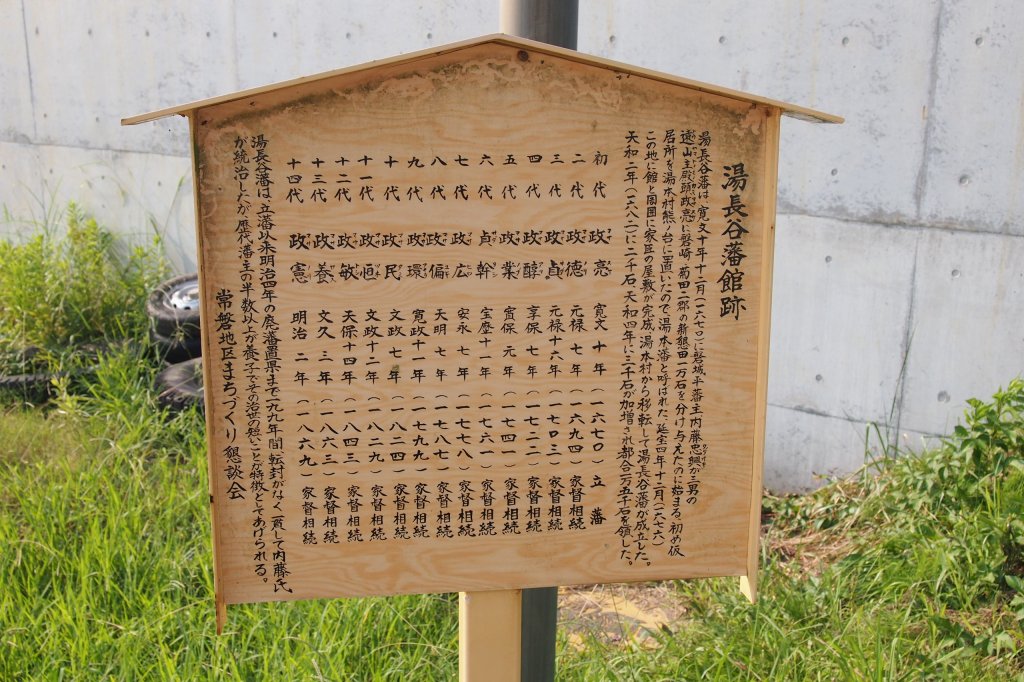 湯長谷藩館跡
湯長谷藩は、寛文十年十二月(一六七〇)に磐城平藩主内藤忠興が三男の
遠山主殿頭政亮に磐崎、菊田二郡の新懇田一万石を分け与えたのに始まる。初め仮
居所を湯本村熊ノ台に置いたので湯本藩と呼ばれた。延宝四年十二月(一六七六)
この地に館と周囲に家臣の屋敷が完成、湯本村から移転して湯長谷藩が成立した。
天和二年(一六八二)に二千石、天和四年に三千石が加増され都合一万五千石を領した。
初代 政亮 寛文十年(一六七〇)立藩
二代 政徳 元禄七年(一六九四)家督相続
三代 政貞 元禄十六年(一七〇三)家督相続
四代 政醇 享保七年(一七二二)家督相続
五代 政業 寛保元年(一七四一)家督相続
六代 貞幹 宝歴十一年(一七六一)家督相続
七代 政広 安永七年(一七七八)家督相続
八代 政偏 天明七年(一七八七)家督相続
九代 政環 寛政十一年(一七九九)家督相続
十代 政民 文政七年(一八二四)家督相続
十一代 政恒 文政十二年(一八二九)家督相続
十二代 政敏 天保十四年(一八四三)家督相続
十三代 政養 文久三年(一八六三)家督相続
十四代 政憲 明治二年(一八六九)家督相続
湯長谷藩は、立藩以来明治四年の廃藩置県まで一九九年間、転封がなく一貫して内藤氏
が統治したが歴代藩主の半数以上が養子でその治世の短いことが特徴としてあげられる。
常磐地区まちづくり懇談会